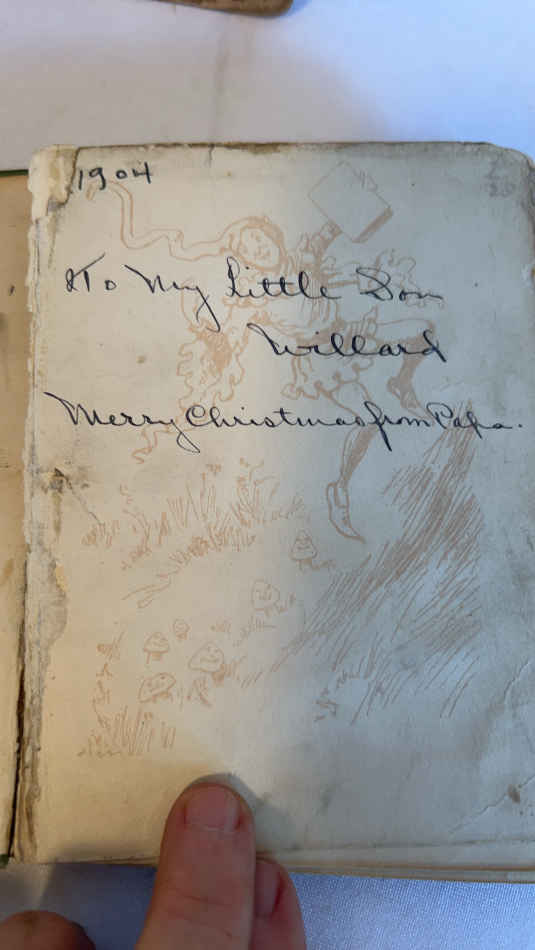 1904
To My Little Son
Willard
Merry Christmas from Papa.